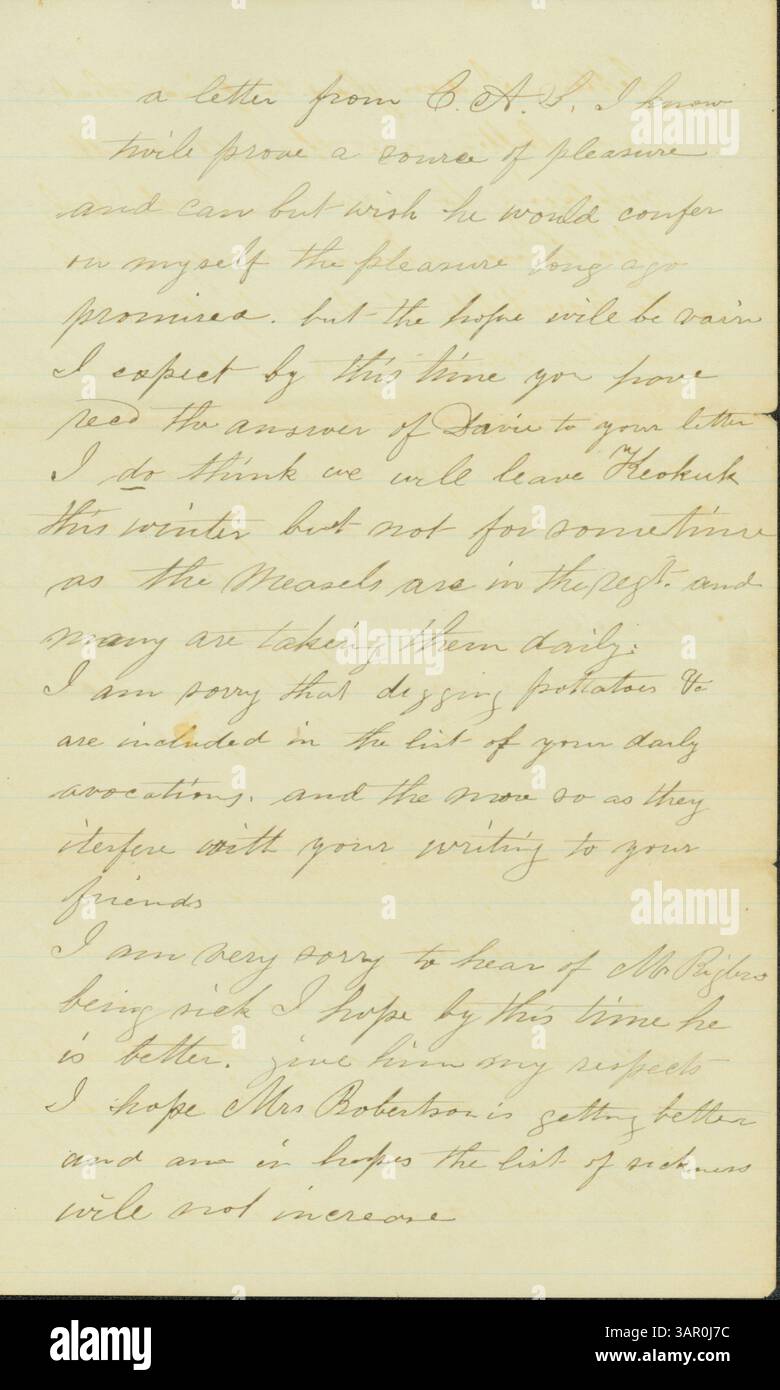 a letter from C. A. L. I know
twile prove a source of pleasure
and can but wish he would confer
on myself the pleasure long ago
promised. but the hope will be vain
I expect by this time you have
recd the answer of Davie to your letter
I do think we will leave Keokuk
this winter but not for sometime
as the Measels are in the regt. and
many are taking them daily.
I am sorry that digging pottatoes &c
are included in the list of your daily
avocations. and the more so as they
iterfere with your writing to your
friends
I am very sorry to hear of Mr
being sick I hope by this time he
is better. give him my respects
I hope Mrs Robertson is getting better
and am in hopes the list of sickness
will not increase
alamy
Image ID: 3AR0J7C
www.alamy.com